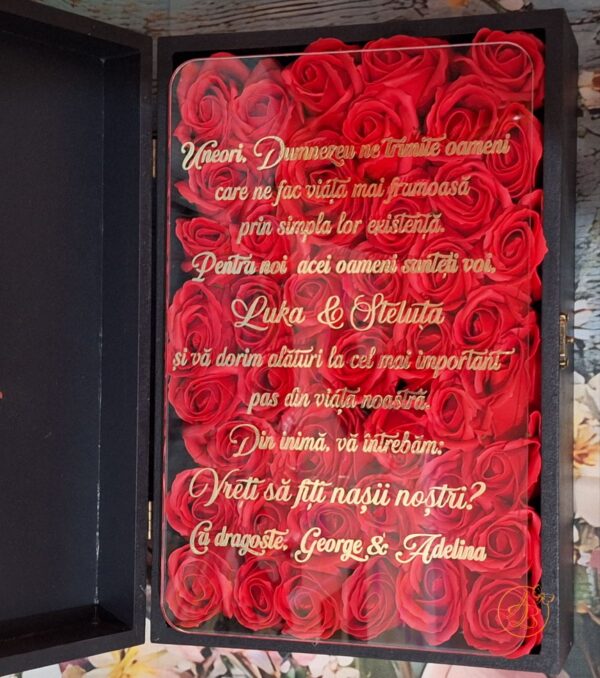 Uneori, Dumnezeu ne trimite oameni
care ne fac viața mai frumoasă
prin simpla lor existență.
Pentru noi acei oameni sunteți voi,
Luka & Steluta
și vă dorim alături la cel mai important
pas din viața noastră.
Din inimă, vă întrebăm:
Vreti să fiți nașii noștri?
Cu dragoste, George & Adelina